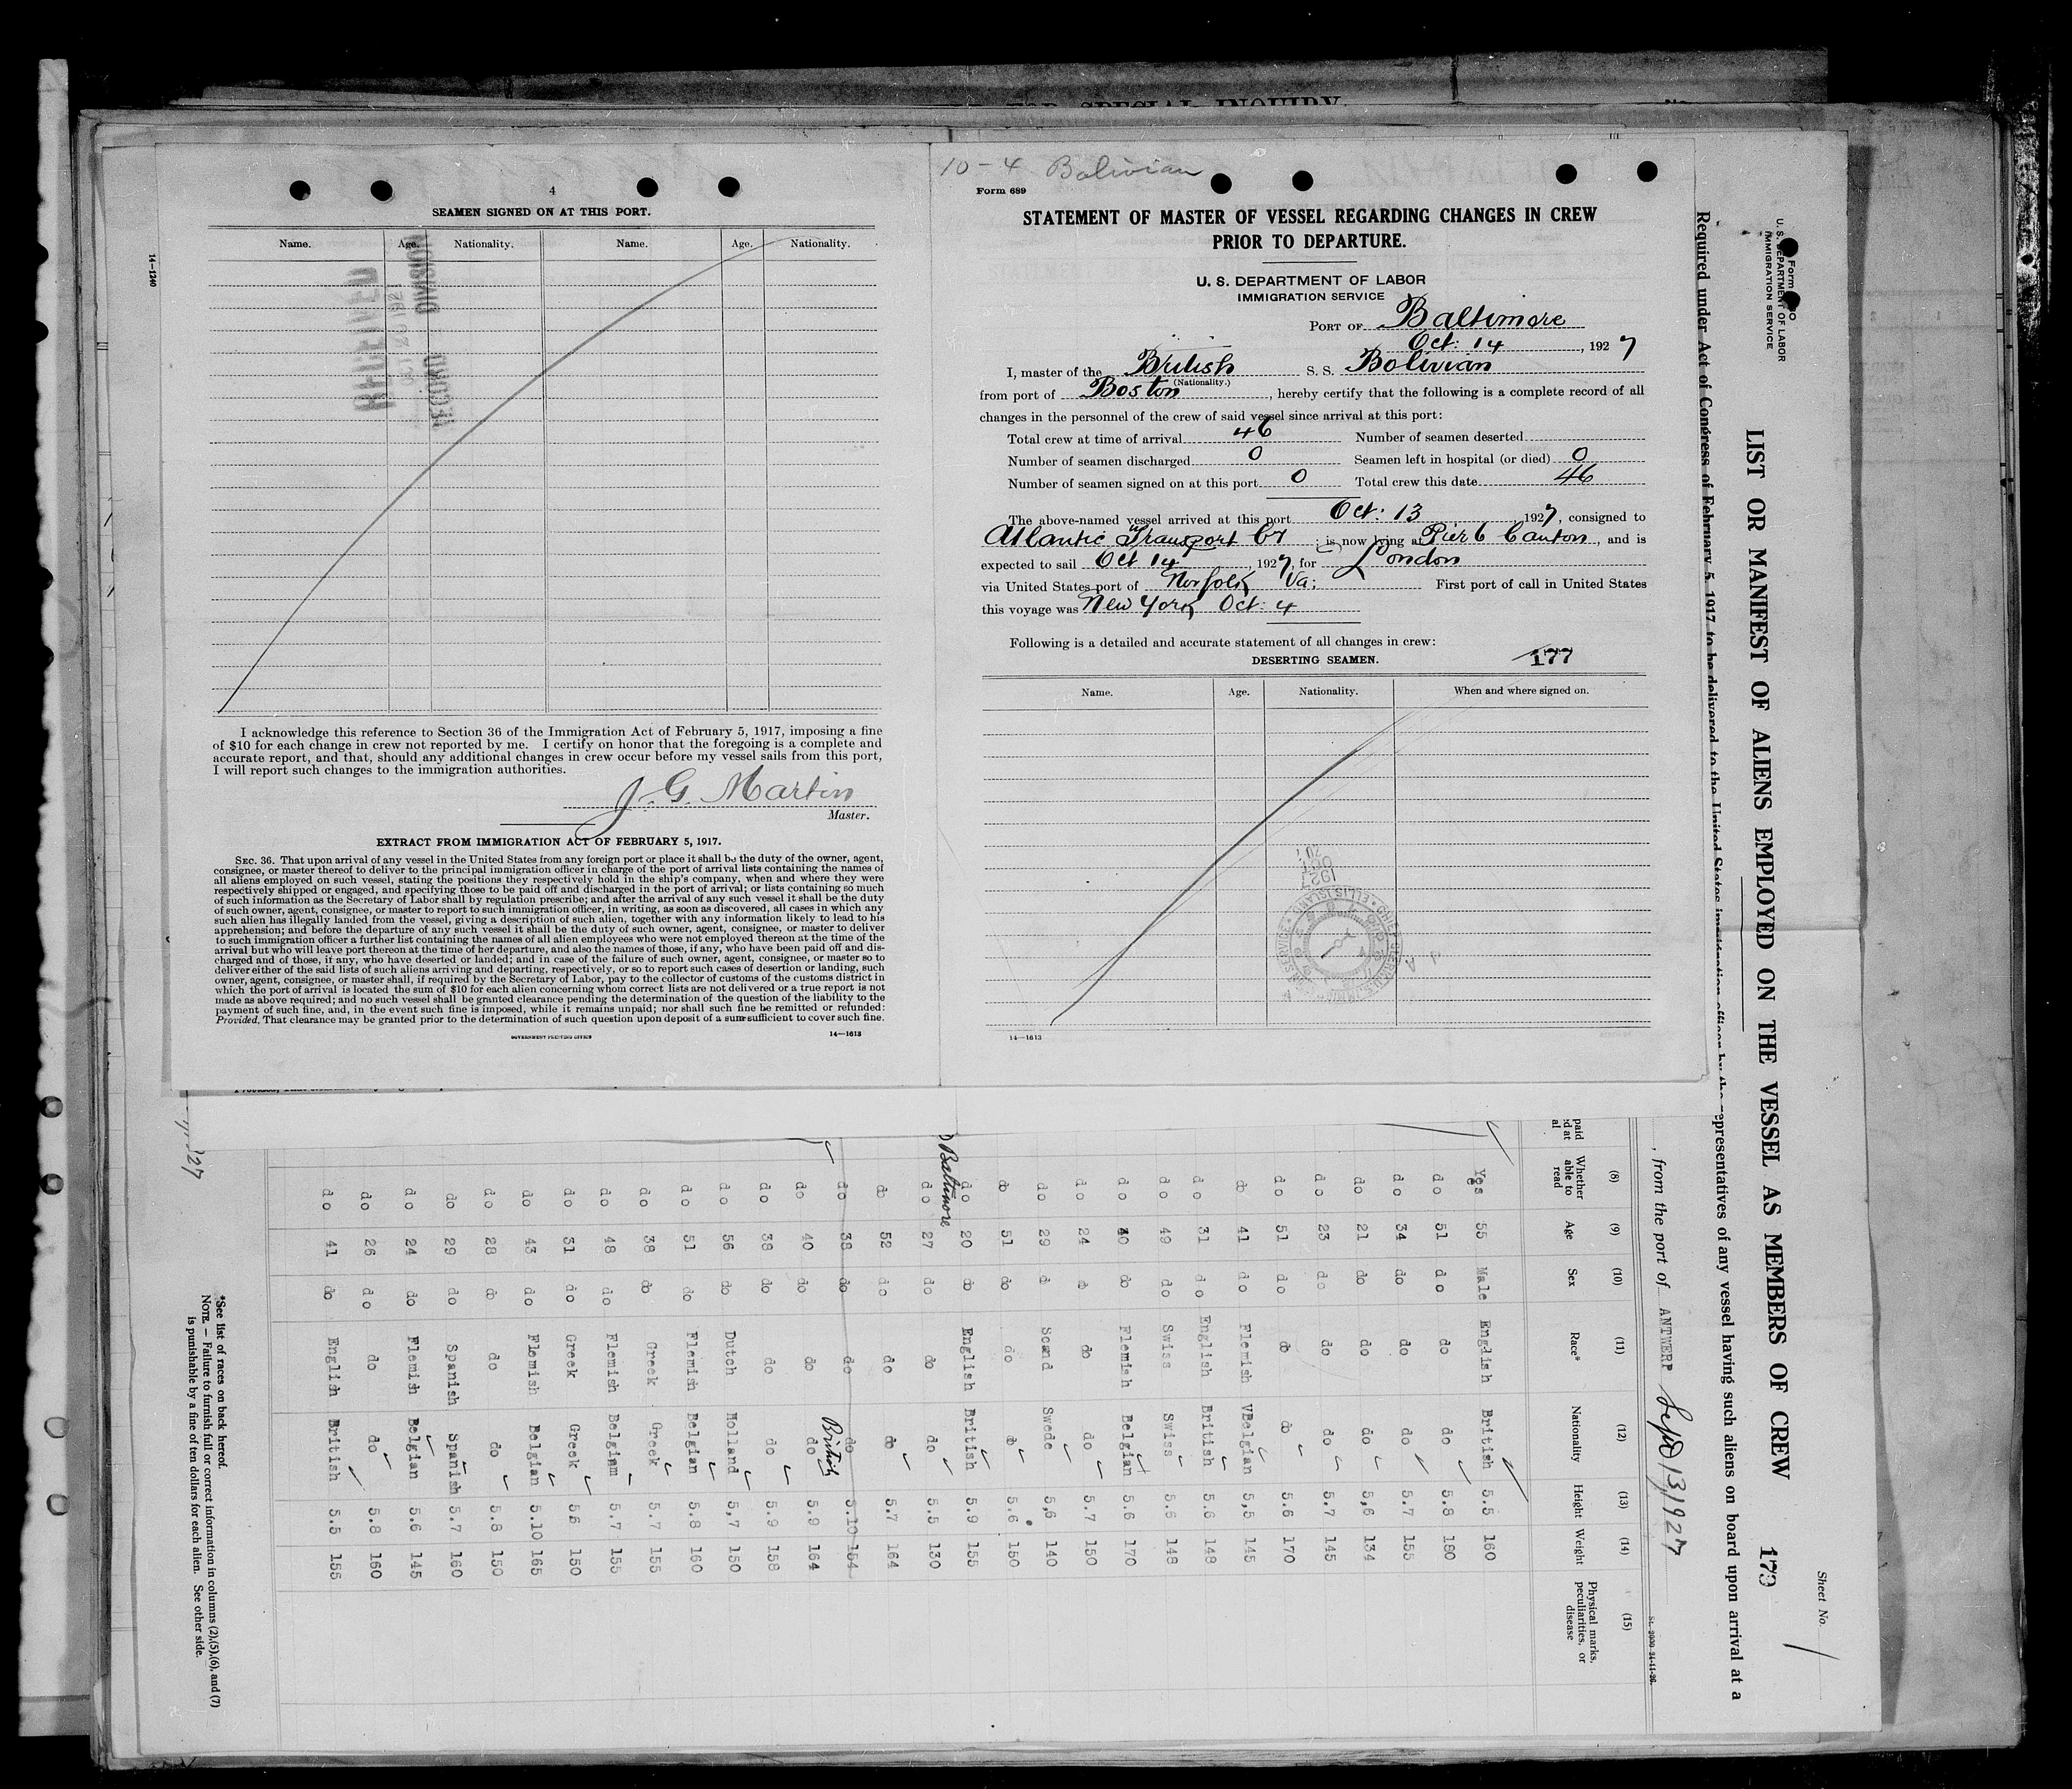 FOR SPECIAL INQUIRY
4
SEAMEN SIGNED ON AT THIS PORT.
Name. Age. Nationality. Name. Age. Nationality.
14—1240
RECORD DIVISION
I acknowledge this reference to Section 36 of the Immigration Act of February 5, 1917, imposing a fine
of $10 for each change in crew not reported by me. I certify on honor that the foregoing is a complete and
accurate report, and that, should any additional changes in crew occur before my vessel sails from this port,
I will report such changes to the immigration authorities.
J. G. Martin
Master.
EXTRACT FROM IMMIGRATION ACT OF FEBRUARY 5, 1917.
SEC. 36. That upon arrival of any vessel in the United States from any foreign port or place it shall be the duty of the owner, agent,
consignee, or master thereof to deliver to the principal immigration officer in charge of the port of arrival lists containing the names of
all aliens employed on such vessel, stating the positions they respectively hold in the ship's company, when and where they were
respectively shipped or engaged, and specifying those to be paid off and discharged in the port of arrival; or lists containing so much
of such information as the Secretary of Labor shall by regulation prescribe; and after the arrival of any such vessel it shall be the duty
of such owner, agent, consignee, or master to report to such immigration officer, in writing, as soon as discovered, all cases in which any
such alien has illegally landed from the vessel, giving a description of such alien, together with any information likely to lead to his
apprehension; and before the departure of any such vessel it shall be the duty of such owner, agent, consignee, or master to deliver
to such immigration officer a further list containing the names of all alien employees who were not employed thereon at the time of the
arrival but who will leave port thereon at the time of her departure, and also the names of those, if any, who have been paid off and dis-
charged and of those, if any, who have deserted or landed; and in case of the failure of such owner, agent, consignee, or master so to
deliver either of the said lists of such aliens arriving and departing, respectively, or so to report such cases of desertion or landing, such
owner, agent, consignee, or master shall, if required by the Secretary of Labor, pay to the collector of customs of the customs district in
which the port of arrival is located the sum of $10 for each alien concerning whom correct lists are not delivered or a true report is not
made as above required; and no such vessel shall be granted clearance pending the determination of the question of the liability to the
payment of such fine, and, in the event such fine is imposed, while it remains unpaid; nor shall such fine be remitted or refunded:
Provided, That clearance may be granted prior to the determination of such question upon deposit of a sum sufficient to cover such fine.
14—1613
GOVERNMENT PRINTING OFFICE
10-4 Bolivian
Form 689
STATEMENT OF MASTER OF VESSEL REGARDING CHANGES IN CREW
PRIOR TO DEPARTURE.
U. S. DEPARTMENT OF LABOR
IMMIGRATION SERVICE
PORT OF Baltimore
Oct. 14, 1927
I, master of the British S. S. Bolivian
(Nationality.)
from port of Boston, hereby certify that the following is a complete record of all
changes in the personnel of the crew of said vessel since arrival at this port:
Total crew at time of arrival 46 Number of seamen deserted
Number of seamen discharged 0 Seamen left in hospital (or died) 0
Number of seamen signed on at this port 0 Total crew this date 46
The above-named vessel arrived at this port Oct. 13 1927, consigned to
Atlantic Transport Co ; is now lying at Pier 6 Canton, and is
expected to sail Oct 14, 1927, for London
via United States port of Norfolk Va; First port of call in United States
this voyage was New York Oct. 4
Following is a detailed and accurate statement of all changes in crew:
DESERTING SEAMEN. 177
Name. Age. Nationality. When and where signed on.
14—1613
Sheet No. 1
U. S. DEPARTMENT OF LABOR
IMMIGRATION SERVICE
LIST OR MANIFEST OF ALIENS EMPLOYED ON THE VESSEL AS MEMBERS OF CREW 179
Required under Act of Congress of February 5, 1917, to be delivered to the United States immigration officer by the representatives of any vessel having such aliens on board upon arrival at a
, from the port of ANTWERP Sept 13, 1927
(8) (9) (10) (11) (12) (13) (14) (15)
Whether able to read Age Sex Race* Nationality Height Weight Physical marks, peculiarities, or disease
Yes 55 Male English British 5.5 160
do 51 do do do 5.8 180
do 34 do do do 5.7 155
do 21 do do do 5,6 134
do 23 do do do 5.7 145
do 51 do do do 5.6 170
do 41 do Flemish Belgian 5,5 145
do 31 do English British 5.6 148
do 49 do Swiss Swiss 5.6 148
do 40 do Flemish Belgian 5.6 170
do 24 do do do 5.7 150
do 29 do Scand Swede 5,6 140
do 51 do do do 5.6 150
do 20 do English British 5.9 155
Baltimore
do 27 do do do 5.5 130
do 52 do do do 5.7 164
do 38 do do do 5.10 154
do 40 do do do British 5.9 164
do 38 do do do 5.9 158
do 56 do Dutch Holland 5,7 150
do 51 do Flemish Belgian 5.8 160
do 38 do Greek Greek 5.7 155
do 48 do Flemish Belgium 5.7 155
do 31 do Greek Greek 5.6 150
do 43 do Flemish Belgian 5.10 165
do 28 do do do 5.8 150
do 29 do Spanish Spanish 5.7 160
do 24 do Flemish Belgian 5.6 145
do 26 do do do 5.8 160
do 41 do English British 5.5 155
*See list of races on back hereof.
NOTE.—Failure to furnish full or correct information in columns (2),(5),(6), and (7)
is punishable by a fine of ten dollars for each alien. See other side.